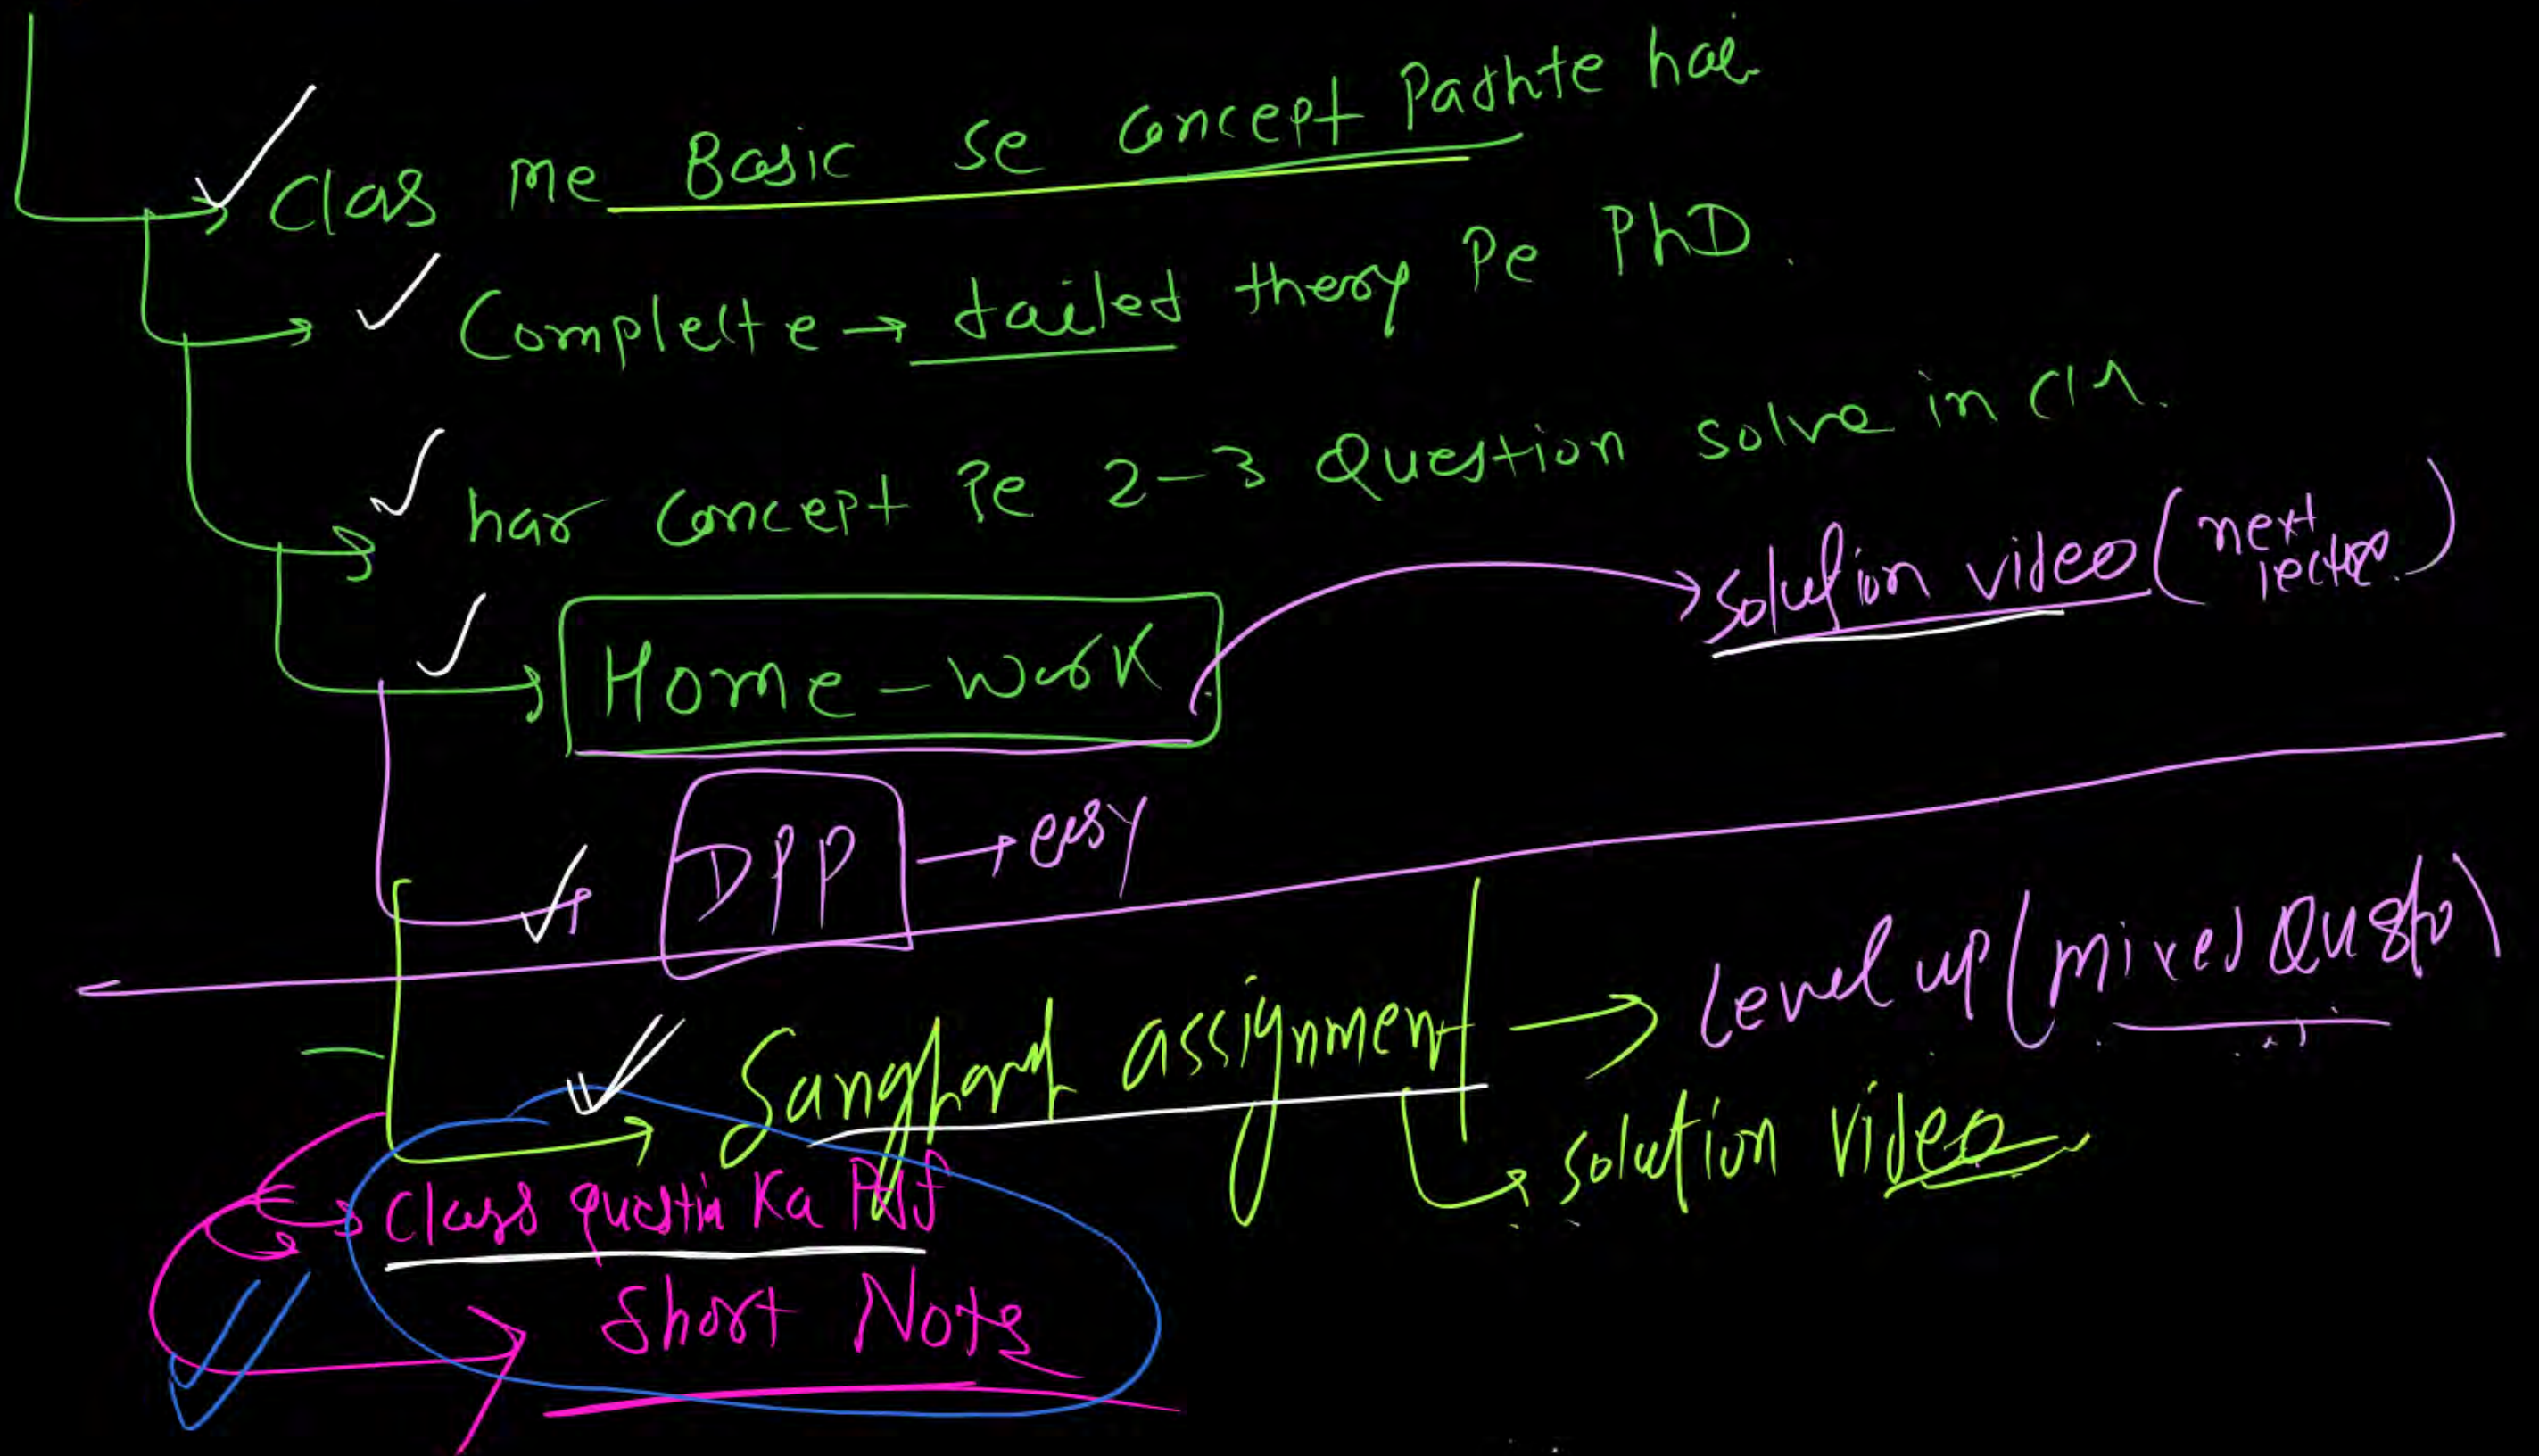 Clas me Basic se concept Padhte hai
Complelte → tailed theory Pe PhD.
har concept Pe 2-3 Question solve in
Home-work
solution video (next lecture)
DPP → easy
assignment → Level up (mixed
solution video
Class question Ka Pdf
Short Notes